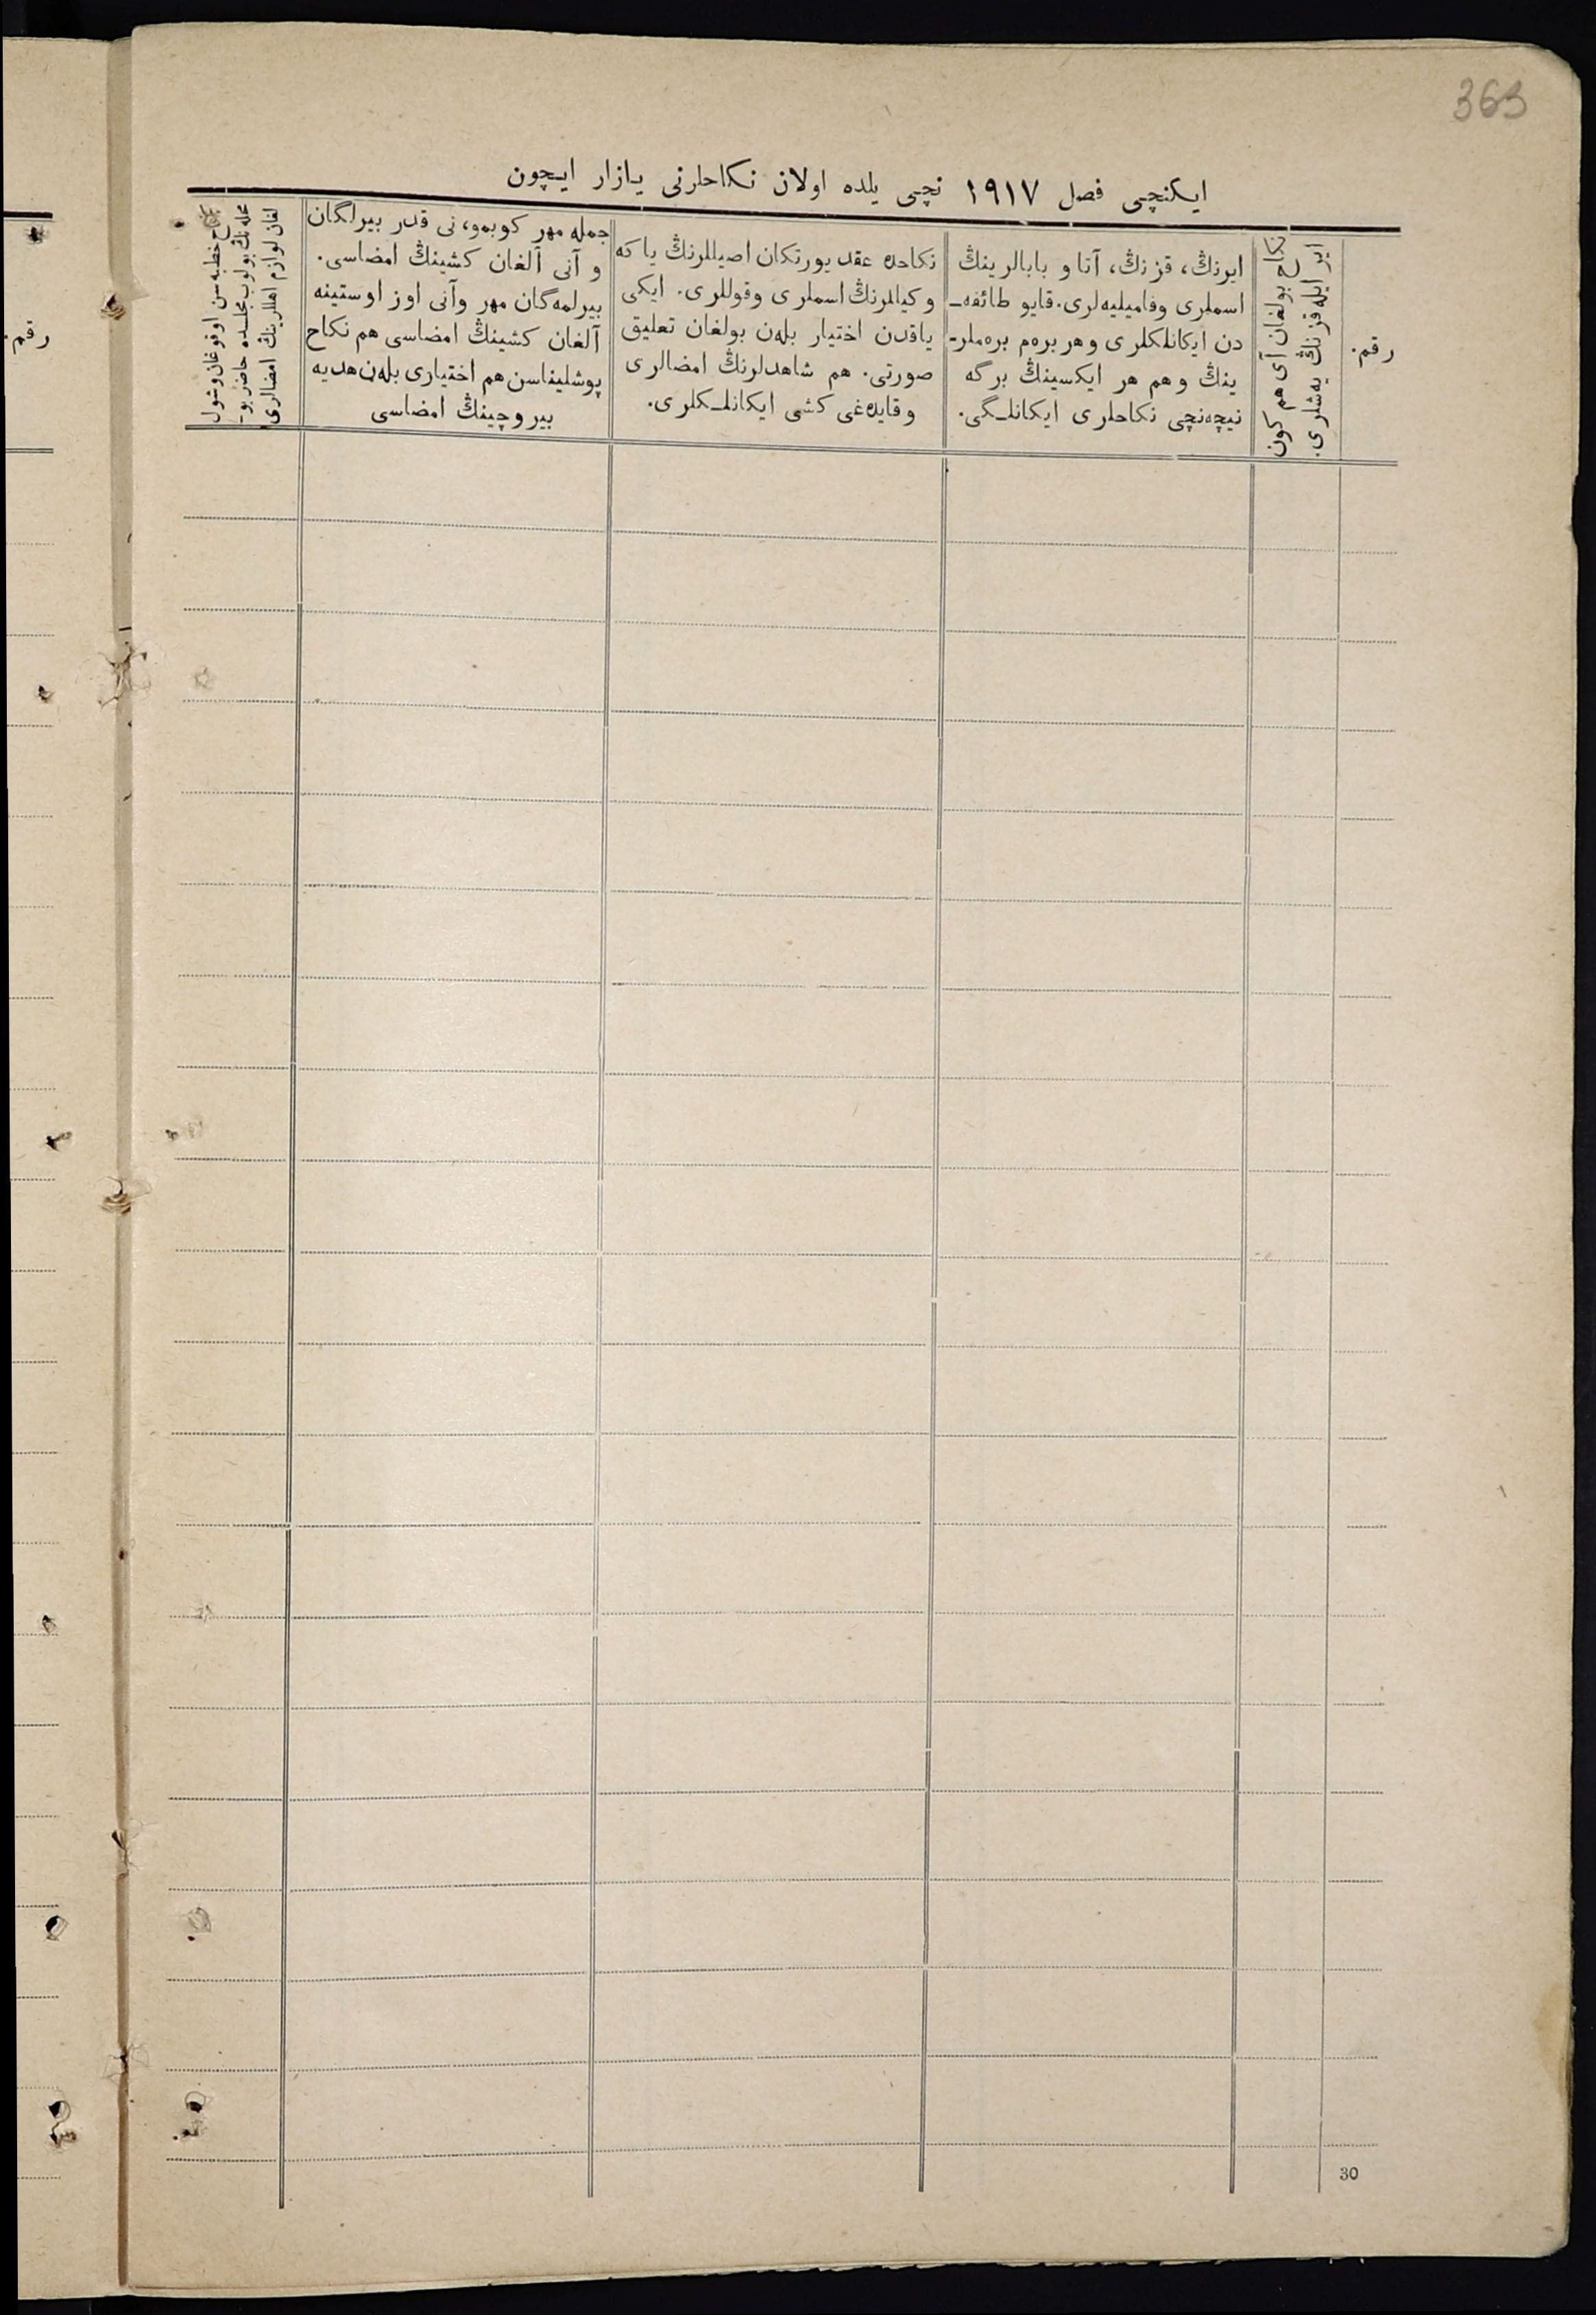 363
ایکنچی فصل ١٩١٧ نچی یلده اولان نکاحلرنی یازار ایچون
رقم.
ایر ایله قزنڭ یەشلری.
نکاح بولغان آی هم کون
ایرنڭ، قزنڭ، آتا و بابالرینڭ
اسملری وفامیلیه‌لری. قایو طائفه‌ـ
دن ایکانلکلری وهر برەم برەملرـ
ینڭ وهم هر ایکسینڭ برگه
نیچه‌نچی نکاحلری ایکانلـگی.
نکاحده عقد یورتکان اصیللرنڭ یاکه
وکیاللرنڭ اسملری وقوللری. ایکی
یاقدن اختیار بلەن بولغان تعلیق
صورتی. هم شاهدلرنڭ امضالری
وقایدەغی کشی ایکانلـکلری.
جمله مهر کوبمو، نی قدر بیرلگان
و آنی آلغان کشینڭ امضاسی.
بیرلمه‌گان مهر وآنی اوز اوستینه
آلغان کشینڭ امضاسی هم نکاح
پوشلیناسن هم اختیاری بلەن هدیه
بیروچینڭ امضاسی
نكاح خطبه‌سن اوقوغان وشول
محله‌نڭ بولوب مجلسده حاضر بوـ
لغان لوازم اهللرینڭ امضالری
رقم.
30